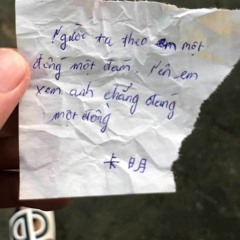 Người ta theo em một
đống một đam nên em
xem anh chẳng đáng
một đồng
卡 明